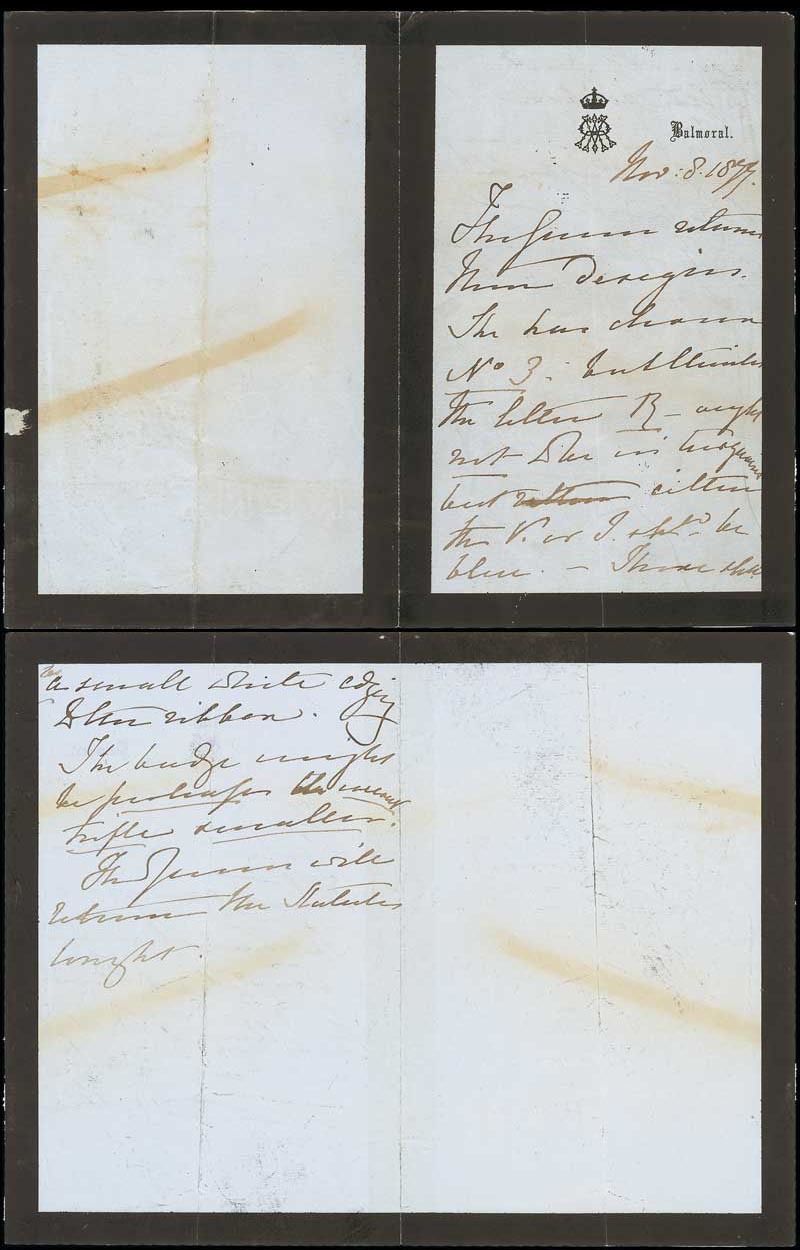 Balmoral.
Nov: 8. 1877.
The Queen returns
these designs.
She has chosen
No 3. but thinks
the letter R – ought
not to be in turquoise
but either
the V. or I. shd. be
blue. – There shd.
be a small white edging
to the ribbon.
The badge might
be perhaps the merest
trifle smaller.
The Queen will
return the Statutes
tonight.